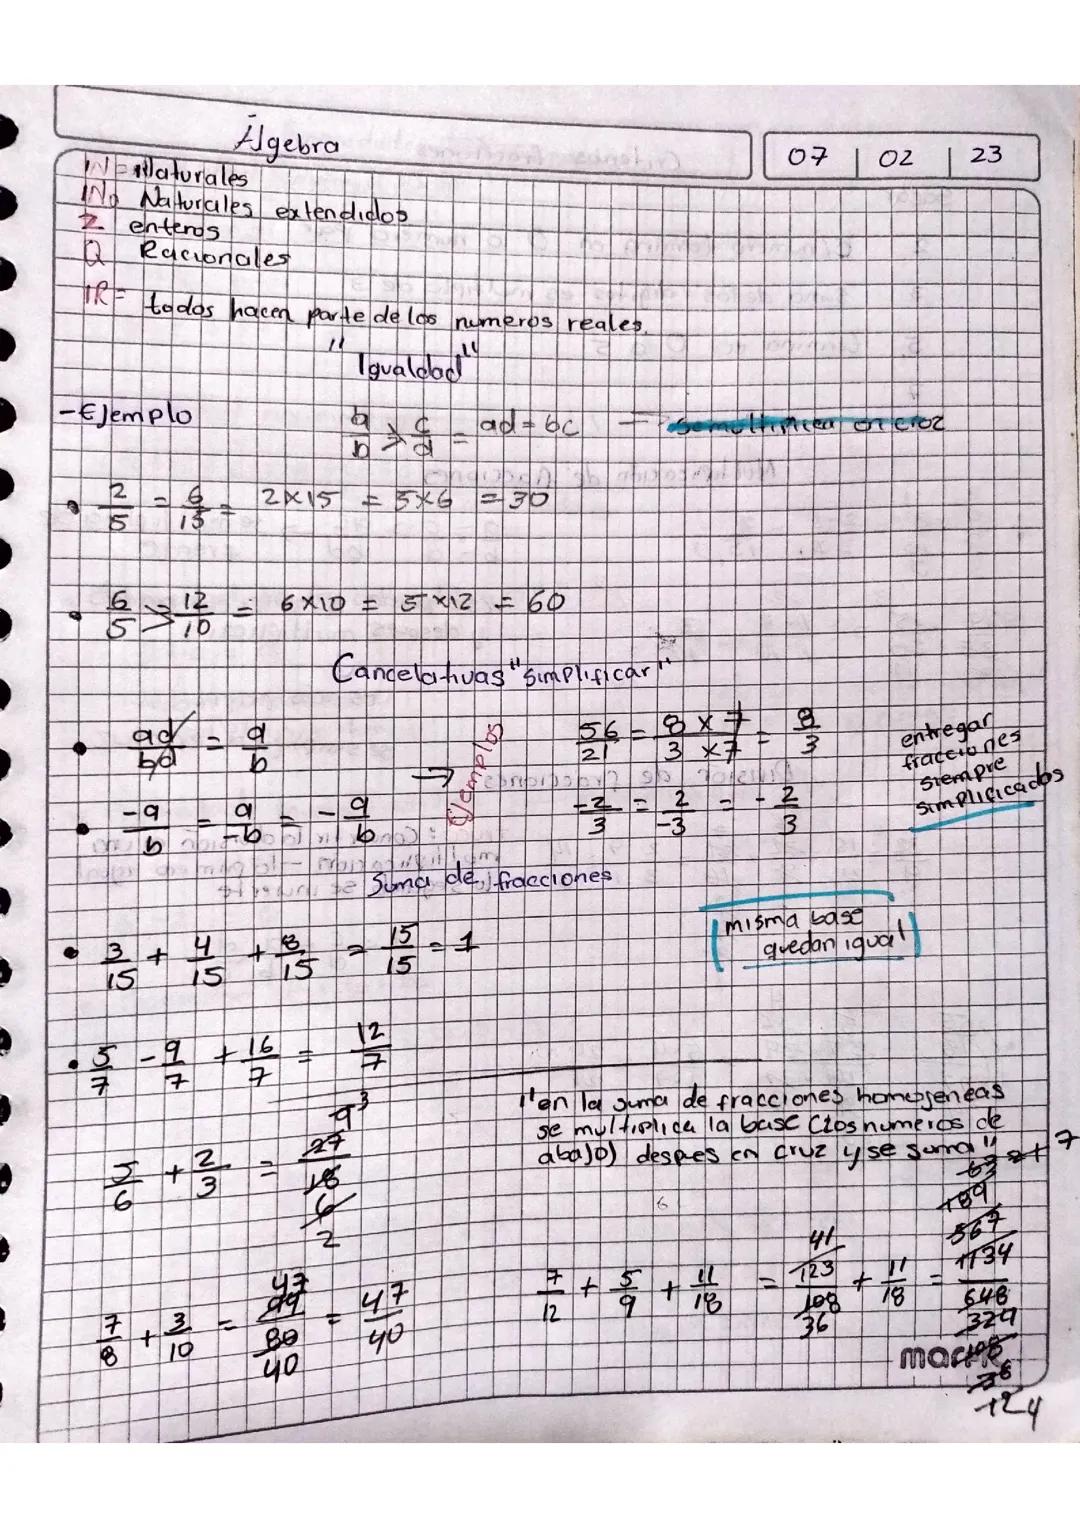 Algebra
07 | 02 | 23
IN = Naturales
INo Naturales extendidos
Z enteros
Q Racionales
IR = todos hacen parte de los numeros reales.
"Igualdad"
- Ejemplo a/b = c/d = ad = bc → se multiplica en croz
• 2/5 = 6/15 = 2x15 = 5x6 = 30
• 6/5 = 12/10 = 6x10 = 5x12 = 60
Cancelativas "simplificar"
• ad/bd = a/b
→ Ejemplos
56/21 = 8 x 7/3 x 7 = 8/3
entregar
fracciones
siempre
simplificados
• -a/b = a/-b = - a/b
-2/3 = 2/-3 = - 2/3
Suma de fracciones
• 3/15 + 4/15 + 8/15 = 15/15 = 1
misma base
quedan igual
• 5/7 - 9/7 + 16/7 = 12/7
"en la suma de fracciones homogeneas
se multiplica la base (los numeros de
abajo) despues en cruz y se suma"
5/6 + 2/3 = 27/18
9 3
6
2
7/8 + 3/10 = 94/80 = 47/40
47
40
7/12 + 5/9 + 11/18 = 123/108 + 11/18 = 1134/648
41
36
567
189
63
324
108
36